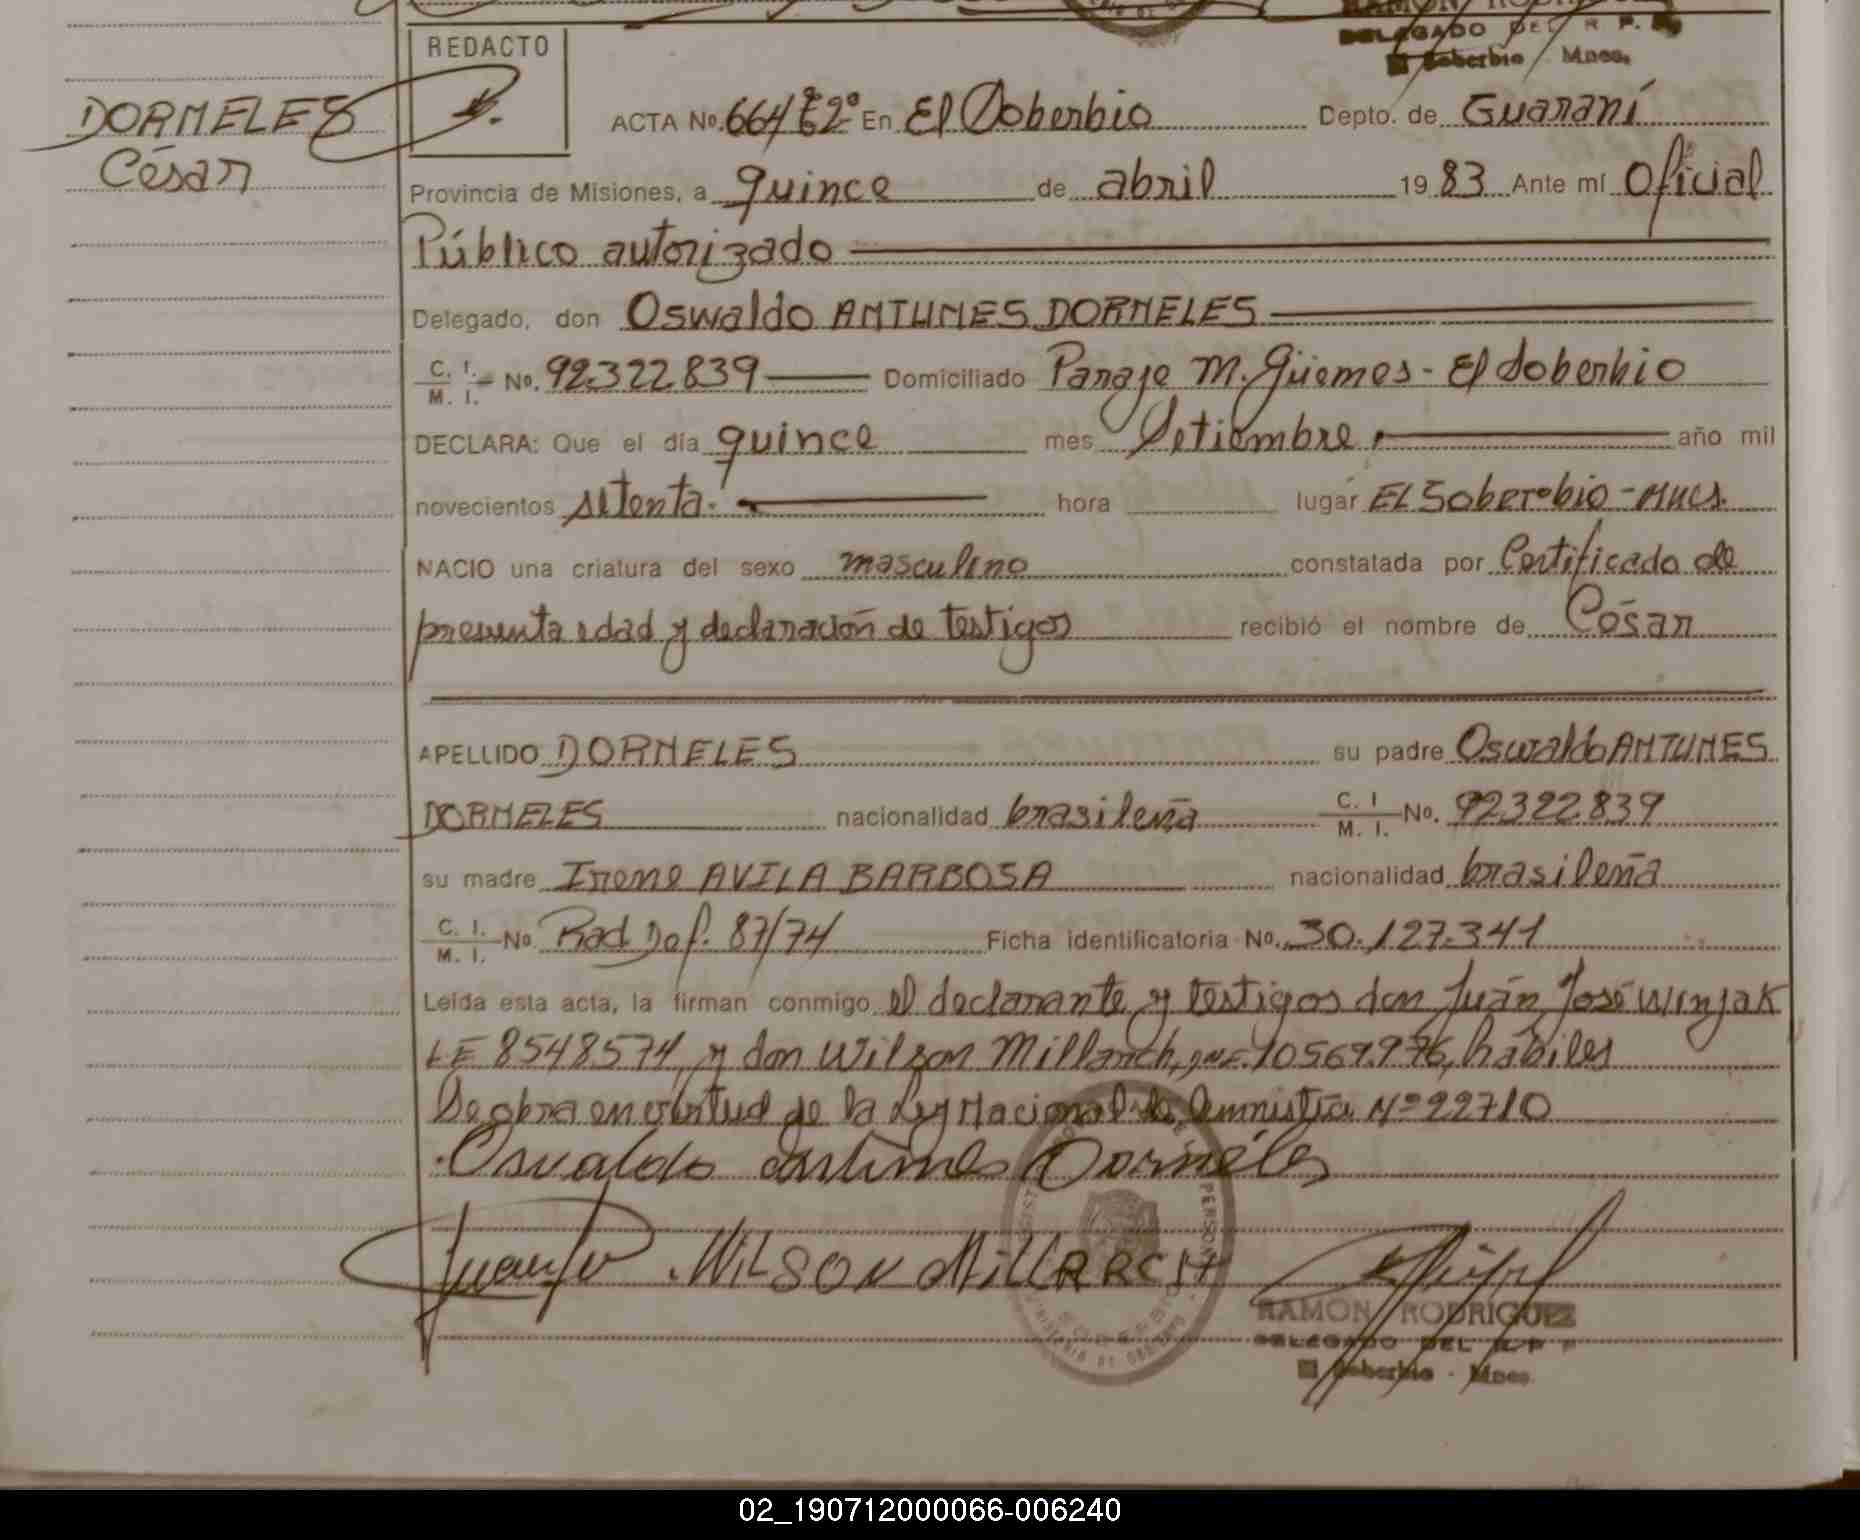 RAMON RODRIGUEZ
DELEGADO DEL R. P. P.
El Soberbio - Mnes.
REDACTO
DORNELES
César
ACTA No. 664 t2º En El Soberbio Depto. de Guaraní
Provincia de Misiones, a quince de abril 19 83 Ante mí Oficial
Público autorizado
Delegado, don Oswaldo ANTUNES DORNELES
C. I. M. I. No. 92.322.839 Domiciliado Paraje M. Güemes - El Soberbio
DECLARA: Que el día quince mes Setiembre año mil
novecientos setenta. hora lugar EL Soberbio - Mnes.
NACIO una criatura del sexo masculino constatada por Certificado de
presunta edad y declaración de testigos recibió el nombre de César
APELLIDO DORNELES su padre Oswaldo ANTUNES
DORNELES nacionalidad brasileña C. I M. I. No. 92322.839
su madre Irene AVILA BARBOSA nacionalidad brasileña
C. I. M. I. No Rad Def. 87/74 Ficha identificatoria No. 30.127.341
Leída esta acta, la firman conmigo el declarante y testigos don Juan José Winjak
LE 8548574, y don Wilson Millarch, 10569.976, hábiles
Se obra en virtud de la Ley Nacional de Amnistía Nº 22710
Osvaldo antunes Dornéles
WILSON MillARCH
RAMON RODRIGUEZ
DELEGADO DEL R P P
El Soberbio - Mnes.
02_190712000066-006240